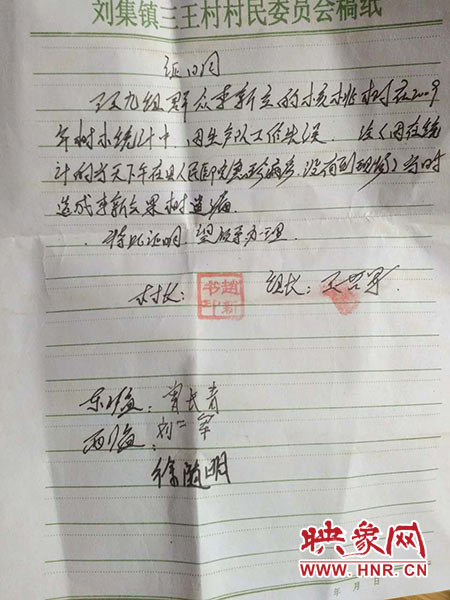 刘集镇三王村村民委员会稿纸
证明
三王九组群众李新立的核桃树在2009
年树木统计中,因生产队工作失误 没(因在统
计的当天下午在县人民医院急诊病房,没有到现场)当时
造成李新立果树遗漏.
特此证明 望领导办理.
村长: 赵新书印 组长: 王召军
东临: 曹长青
西临: 刘二军
徐随明
年 月 日
映象网
WWW.HNR.CN